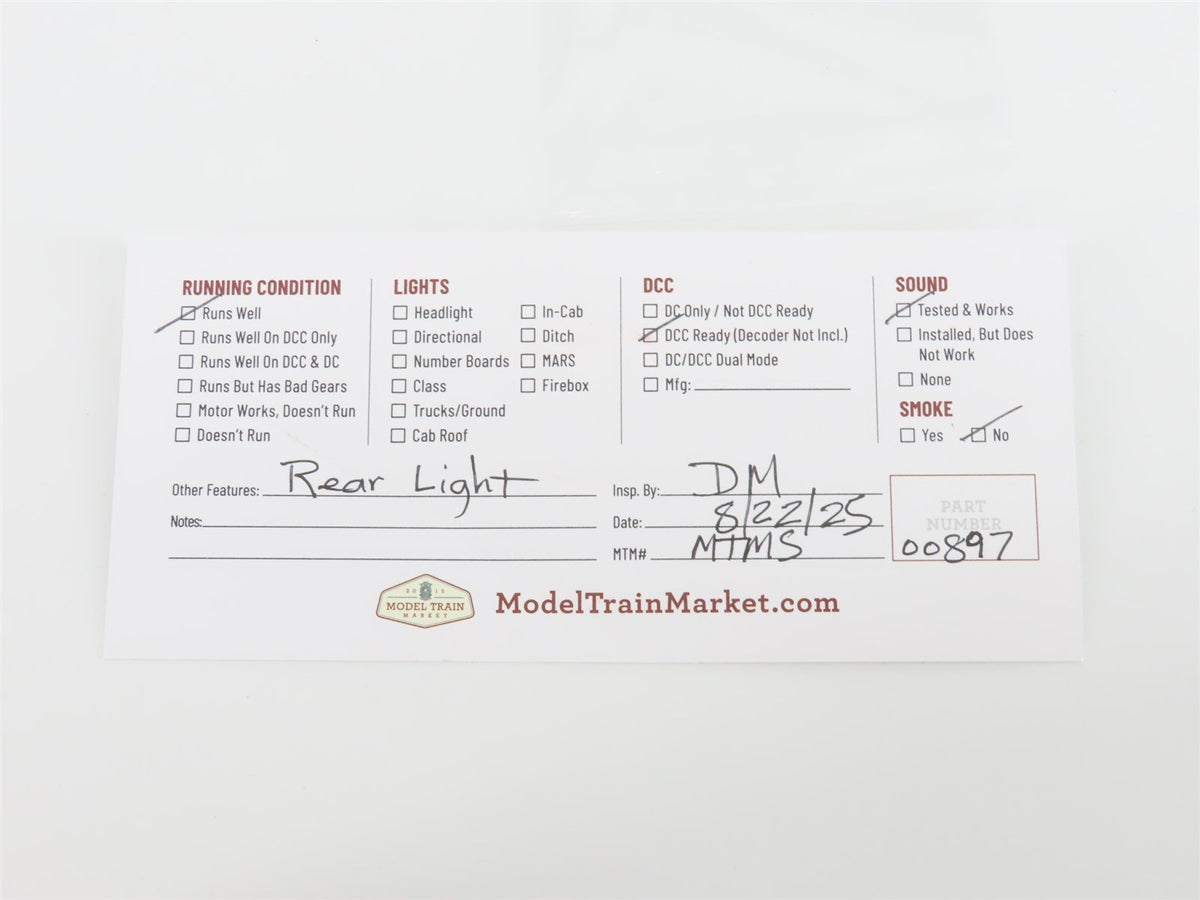 RUNNING CONDITION
Runs Well
Runs Well On DCC Only
Runs Well On DCC & DC
Runs But Has Bad Gears
Motor Works, Doesn't Run
Doesn't Run
LIGHTS
Headlight
Directional
Number Boards
Class
Trucks/Ground
Cab Roof
In-Cab
Ditch
MARS
Firebox
DCC
DC Only / Not DCC Ready
DCC Ready (Decoder Not Incl.)
DC/DCC Dual Mode
Mfg:
SOUND
Tested & Works
Installed, But Does
Not Work
None
SMOKE
Yes No
Other Features: Rear Light
Notes:
Insp. By: DM
Date: 8/22/25
MTM# MTMS
PART
NUMBER
00897
2015
MODEL TRAIN
MARKET
ModelTrainMarket.com